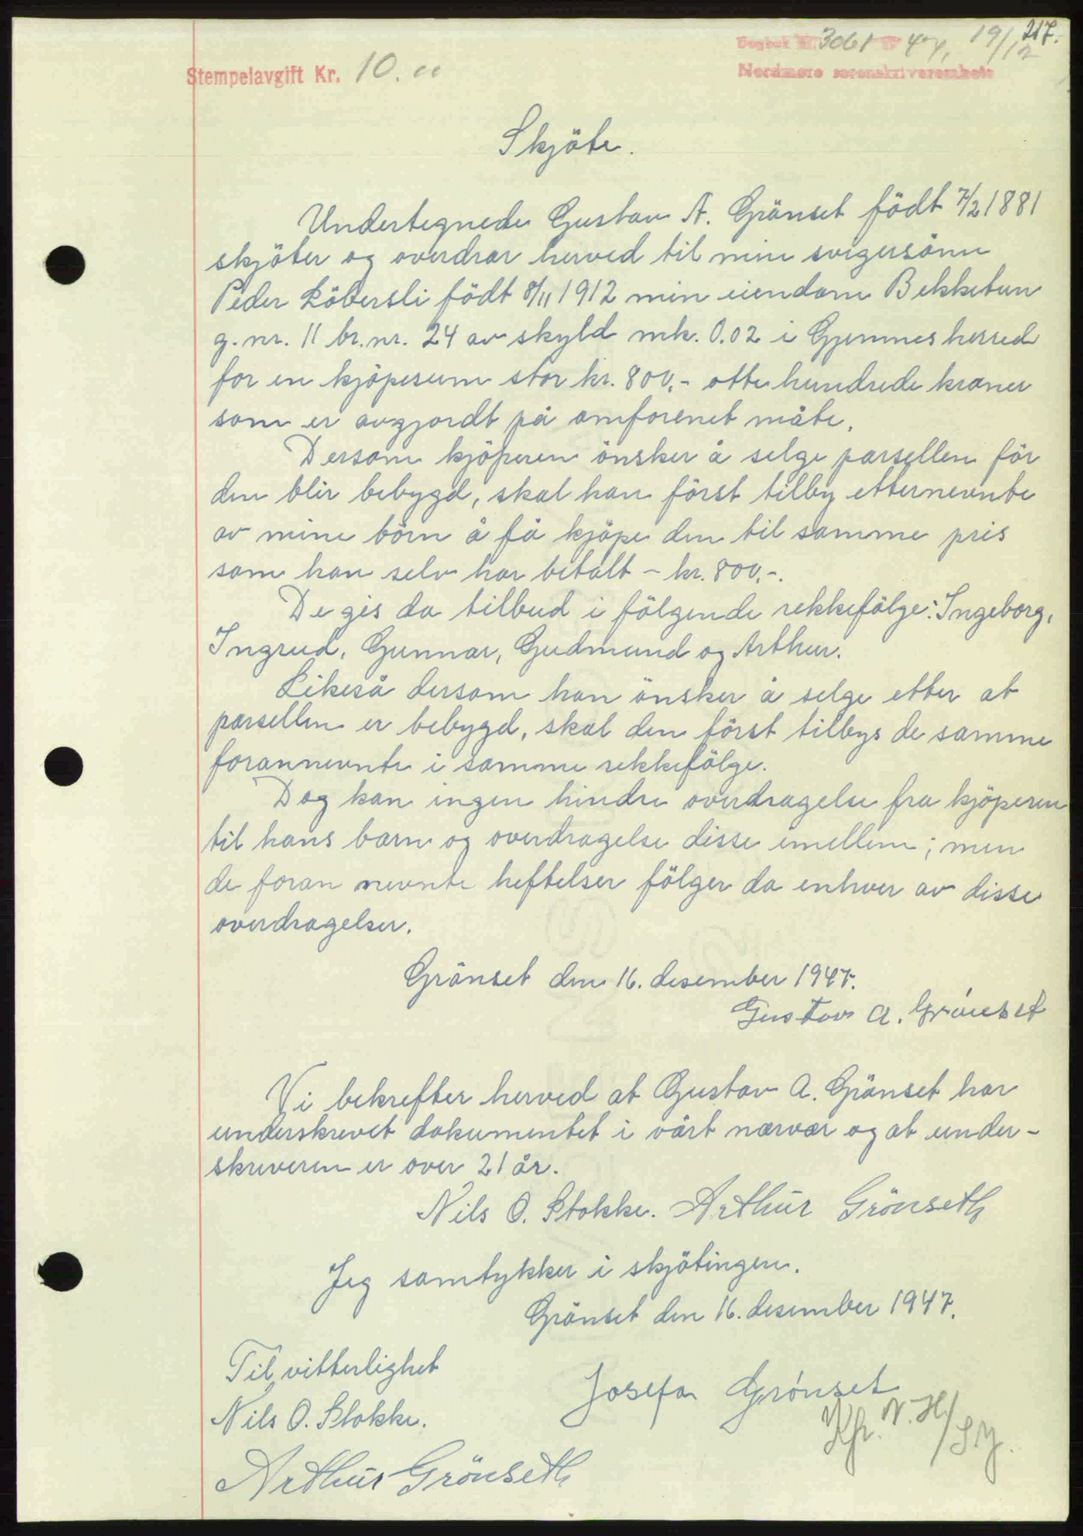 217.
Dagbok nr. 3061 47, 19/12
Stempelavgift Kr. 10.00
Nordmøre sorenskriverembete
Skjöte.
Undertegnede Gustav A. Grönset födt 7/2 1881
skjöter og overdrar herved til min svigersönn
Peder Löbersli födt 8/11 1912 min eiendom Bekketun
g.nr. 11 br.nr. 24 av skyld mk. 0.02 i Gjemnes herred
for en kjöpesum stor kr. 800,- otte hundrede kroner
som er avgjordt på omforenet måte.
Dersom kjöperen önsker å selge parsellen för
den blir bebygd, skal han först tilby etternevnte
av mine börn å få kjöpe den til samme pris
som han selv har betalt - kr. 800,-.
De gis da tilbud i fölgende rekkefölge: Ingeborg,
Ingrud, Gunnar, Gudmund og Arthur.
Likeså dersom han önsker å selge etter at
parsellen er bebygd, skal den först tilbys de samme
forannevnte i samme rekkefölge.
Dog kan ingen hindre overdragelse fra kjöperen
til hans barn og overdragelse disse imellem; men
de foran nevnte heftelser fölger da enhver av disse
overdragelser.
Grönset den 16. desember 1947.
Gustav A. Grönset
Vi bekrefter herved at Gustav A. Grönset har
underskrevet dokumentet i vårt nærvær og at under-
skriveren er over 21 år.
Nils O. Stokke. Arthur Grönseth
Jeg samtykker i skjötingen.
Grönset den 16. desember 1947.
Til vitterlighet
Josefa Grönset
Nils O. Stokke.
Kfr. N.H/SM.
Arthur Grönseth